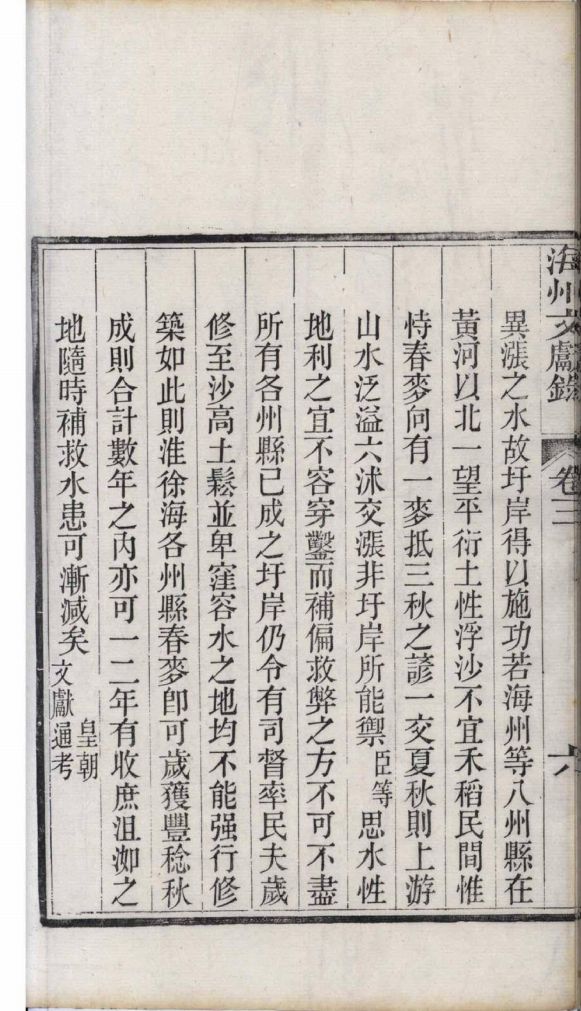 海州文獻錄 卷三 六
異漲之水故圩岸得以施功若海州等八州縣在
黃河以北一望平衍土性浮沙不宜禾稻民間惟
恃春麥向有一麥抵三秋之諺一交夏秋則上游
山水泛溢六沭交漲非圩岸所能禦臣等思水性
地利之宜不容穿鑿而補偏救弊之方不可不盡
所有各州縣已成之圩岸仍令有司督率民夫歲
修至沙高土鬆並卑窪容水之地均不能强行修
築如此則淮徐海各州縣春麥卽可歲獲豐稔秋
成則合計數年之內亦可一二年有收庶沮洳之
地隨時補救水患可漸減矣皇朝文獻通考